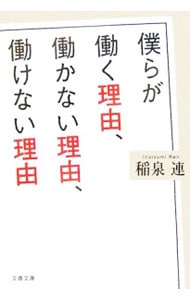 僕らが
働く理由、
働かない理由、
働けない理由
Inaizumi Ren
稲泉 連
文春文庫